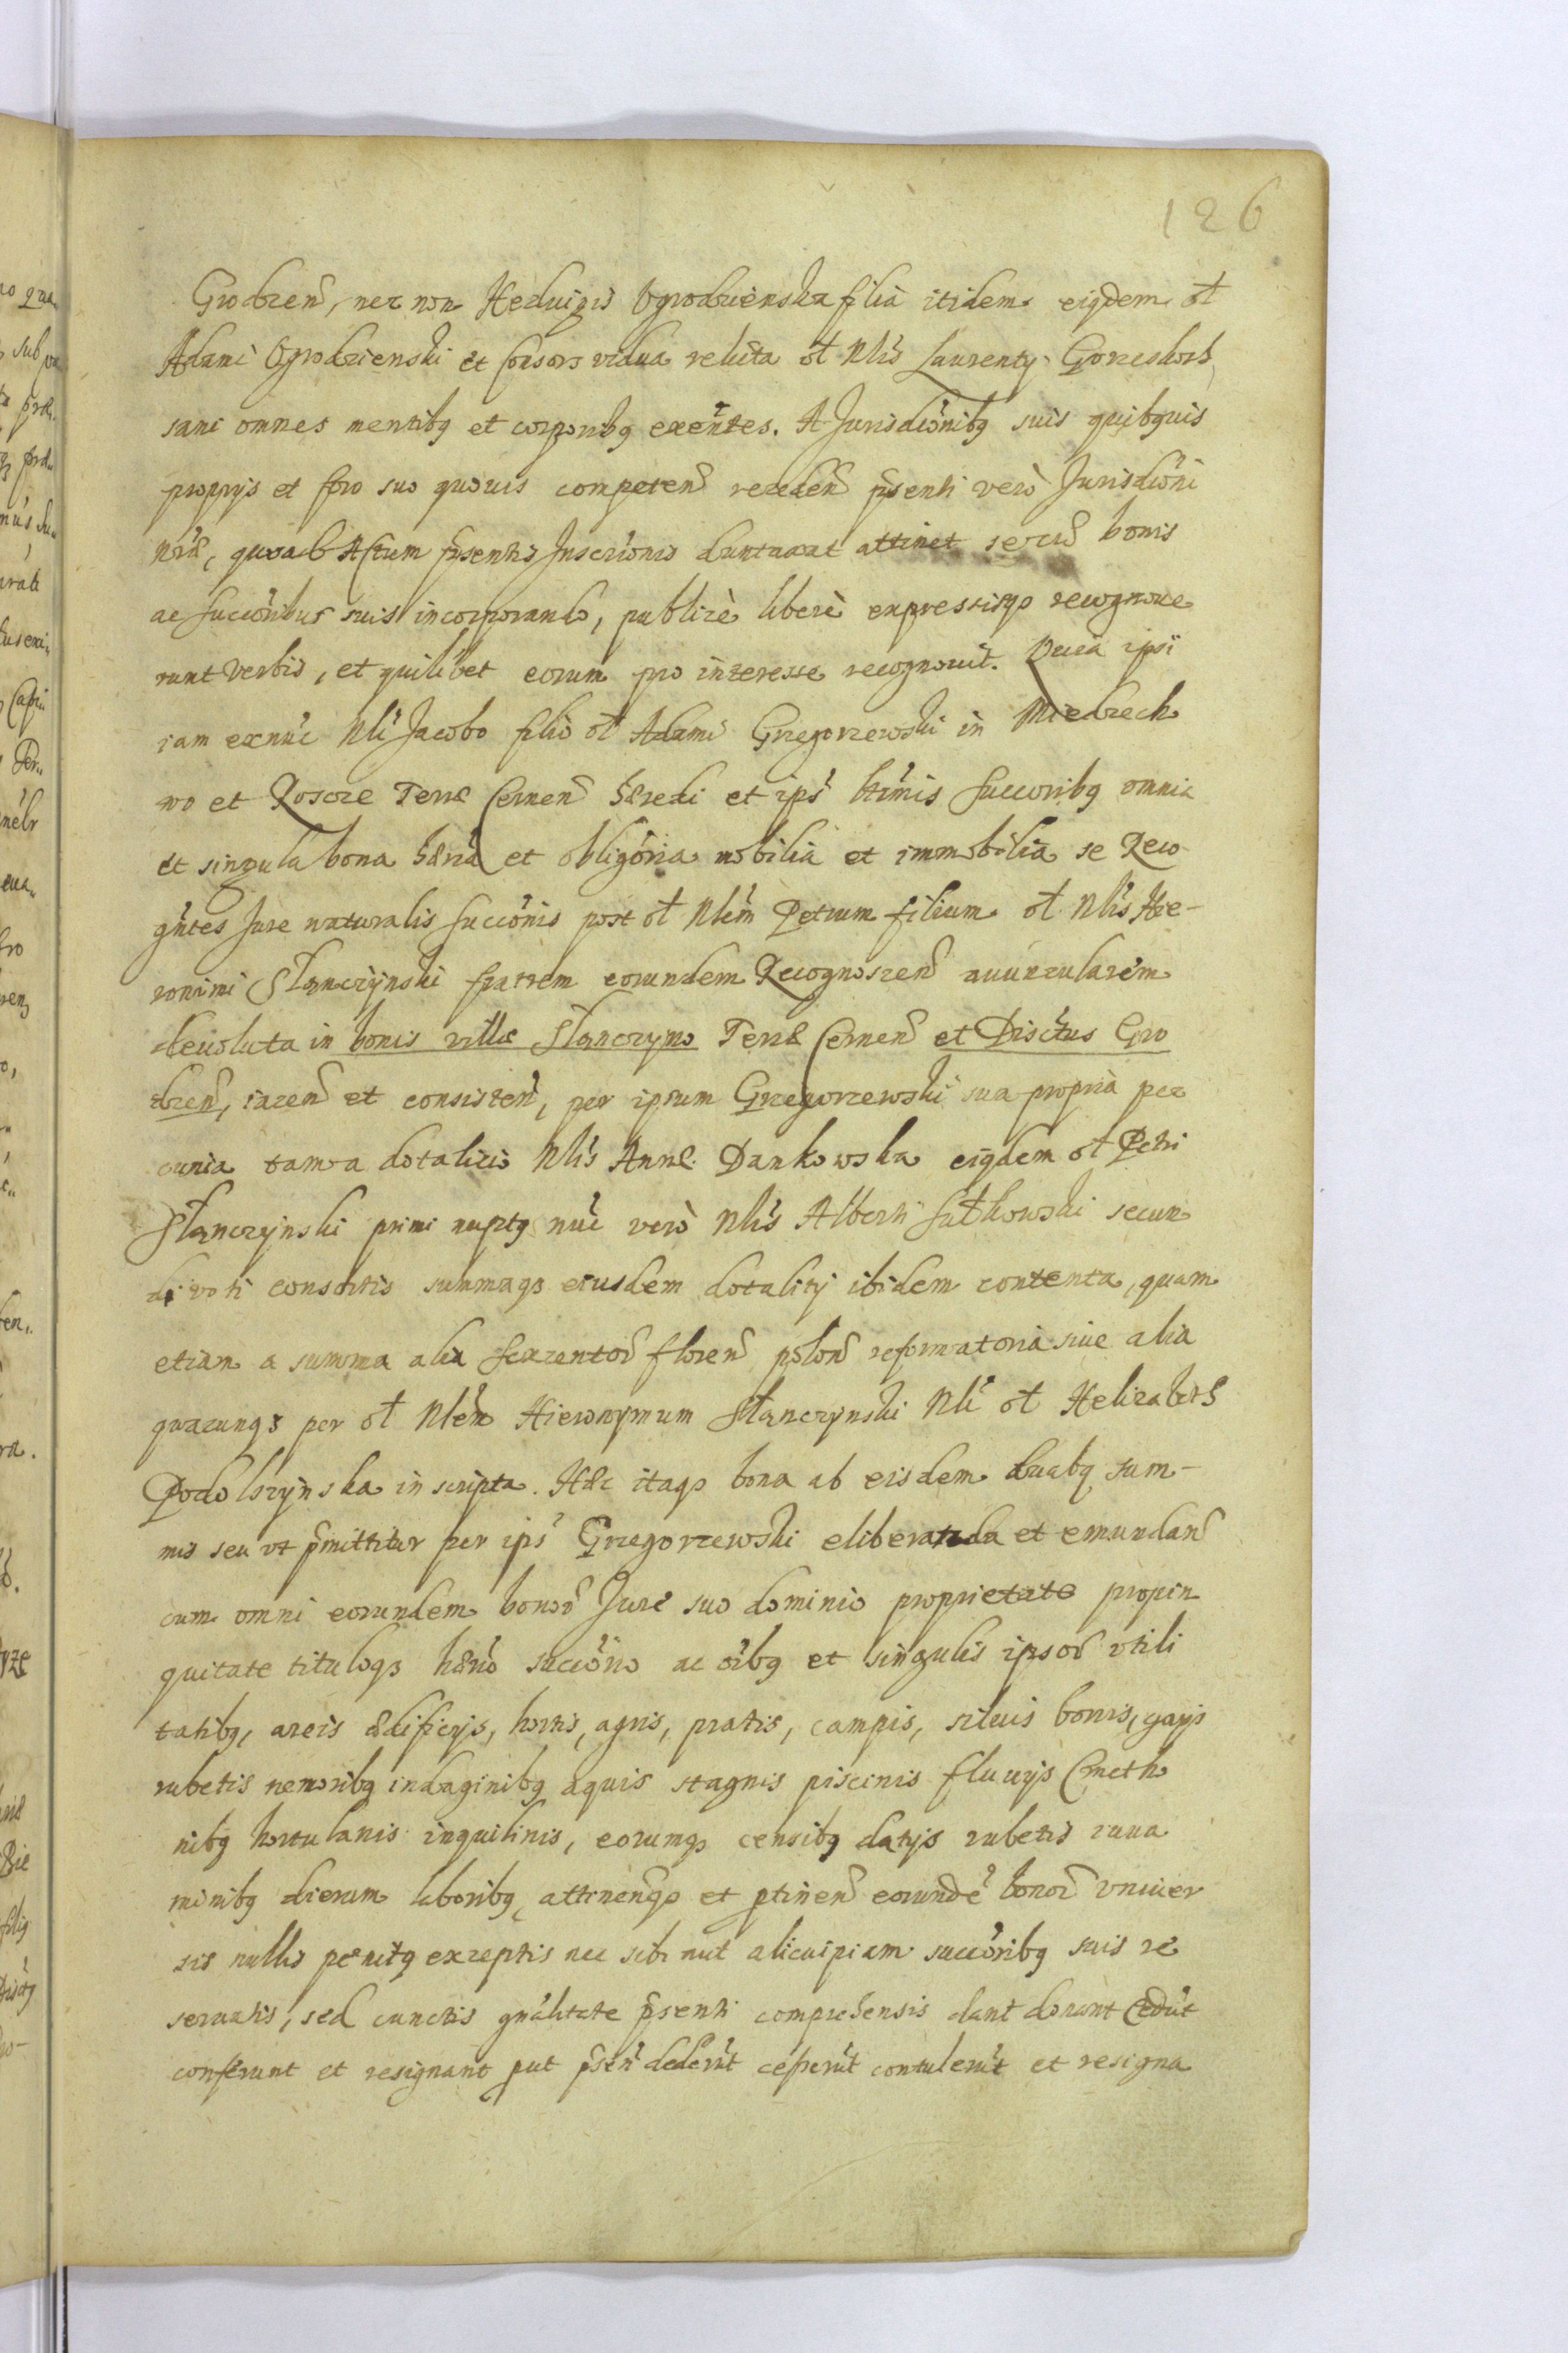 126
Grodzen, nec non Heduigis Ogrodzienska filia itidem eiqdem ol
Adami Ogrodzienski et Consors vidua relicta ol Nlis Laurentij Gorcskoris
sani omnes mentibq et corporibq exentes. A Jurisdionibq suis quibquis
proprijs et foro suo quouis competen receden psenti vero Jurisdioni
nræ, quoad Actum psentis Inscrionis duntaxat attinet se cu bonis
ac succoribus suis incorporando, publice libere expressisqȝ recognoue
runt verbis, et quilibet eorum pro interesse recognouit. Quia ipsi
iam exnuc Nli Jacobo filio ol Adami Grzegorzewski in Miedzech
no et Rososze Terræ Cernen hæredi et ips ltimis succoribq omnia
et singula bona hæria et obligoria mobilia et immobilia se Reco
gntes Jure naturalis succionis post ol Nlem Petrum filium ol Nlis Hie-
ronimi Slanczynski fratrem eorundem Recognoscen auuncularem
deuoluta in bonis villæ Slanczyno Terræ Cernen et Disctus Gro
dzen, iacen et consisten, per ipsum Grzegorzewski sua propria pec
cunia tam a dotalicio Nlis Annæ Dankowska eiqdem ol Petri
Slanczynski primi nuptq nuc vero Nlis Alberti Sulkowski secun
di voti consortis summaqȝ eiusdem dotalitij ibidem contenta, quam
etiam a summa alia sexcentor floren polon reformatoria siue alia
quacunqȝ per ol Nlem Hieronymum Slanczynski Nli ol Helizabets
Podolszynska inscripta. Hæc itaqȝ bona ab eisdem duabq sum-
mis seu vt pmittitur per ips Grzegorzewski eliberanda et emundan
cum omni eorundem bonor Jure suo dominio proprietate propin
quitate tituloqȝ hærio succiono ac oibq et singulis ipsor vtili
tatibq, areis ædificijs, hortis, agris, pratis, campis, siluis boris, gayis
rubetis nemoribq indaginibq aquis stagnis piscinis fluuijs Cmetho
nibq hortulanis inquilinis, eorumqȝ censibq datijs rubetis iuua
minibq dierum laboribq, attinenqȝ et ptinen eorunde bonor vniuer
sis nullis penitq exceptis nec sibi aut alicuipiam succoribq suis re
seruatis, sed cunctis gnalitate psenti comprehensis dant donant cedut
conferunt et resignant put psen dederut ceßerut contulerut et resigna